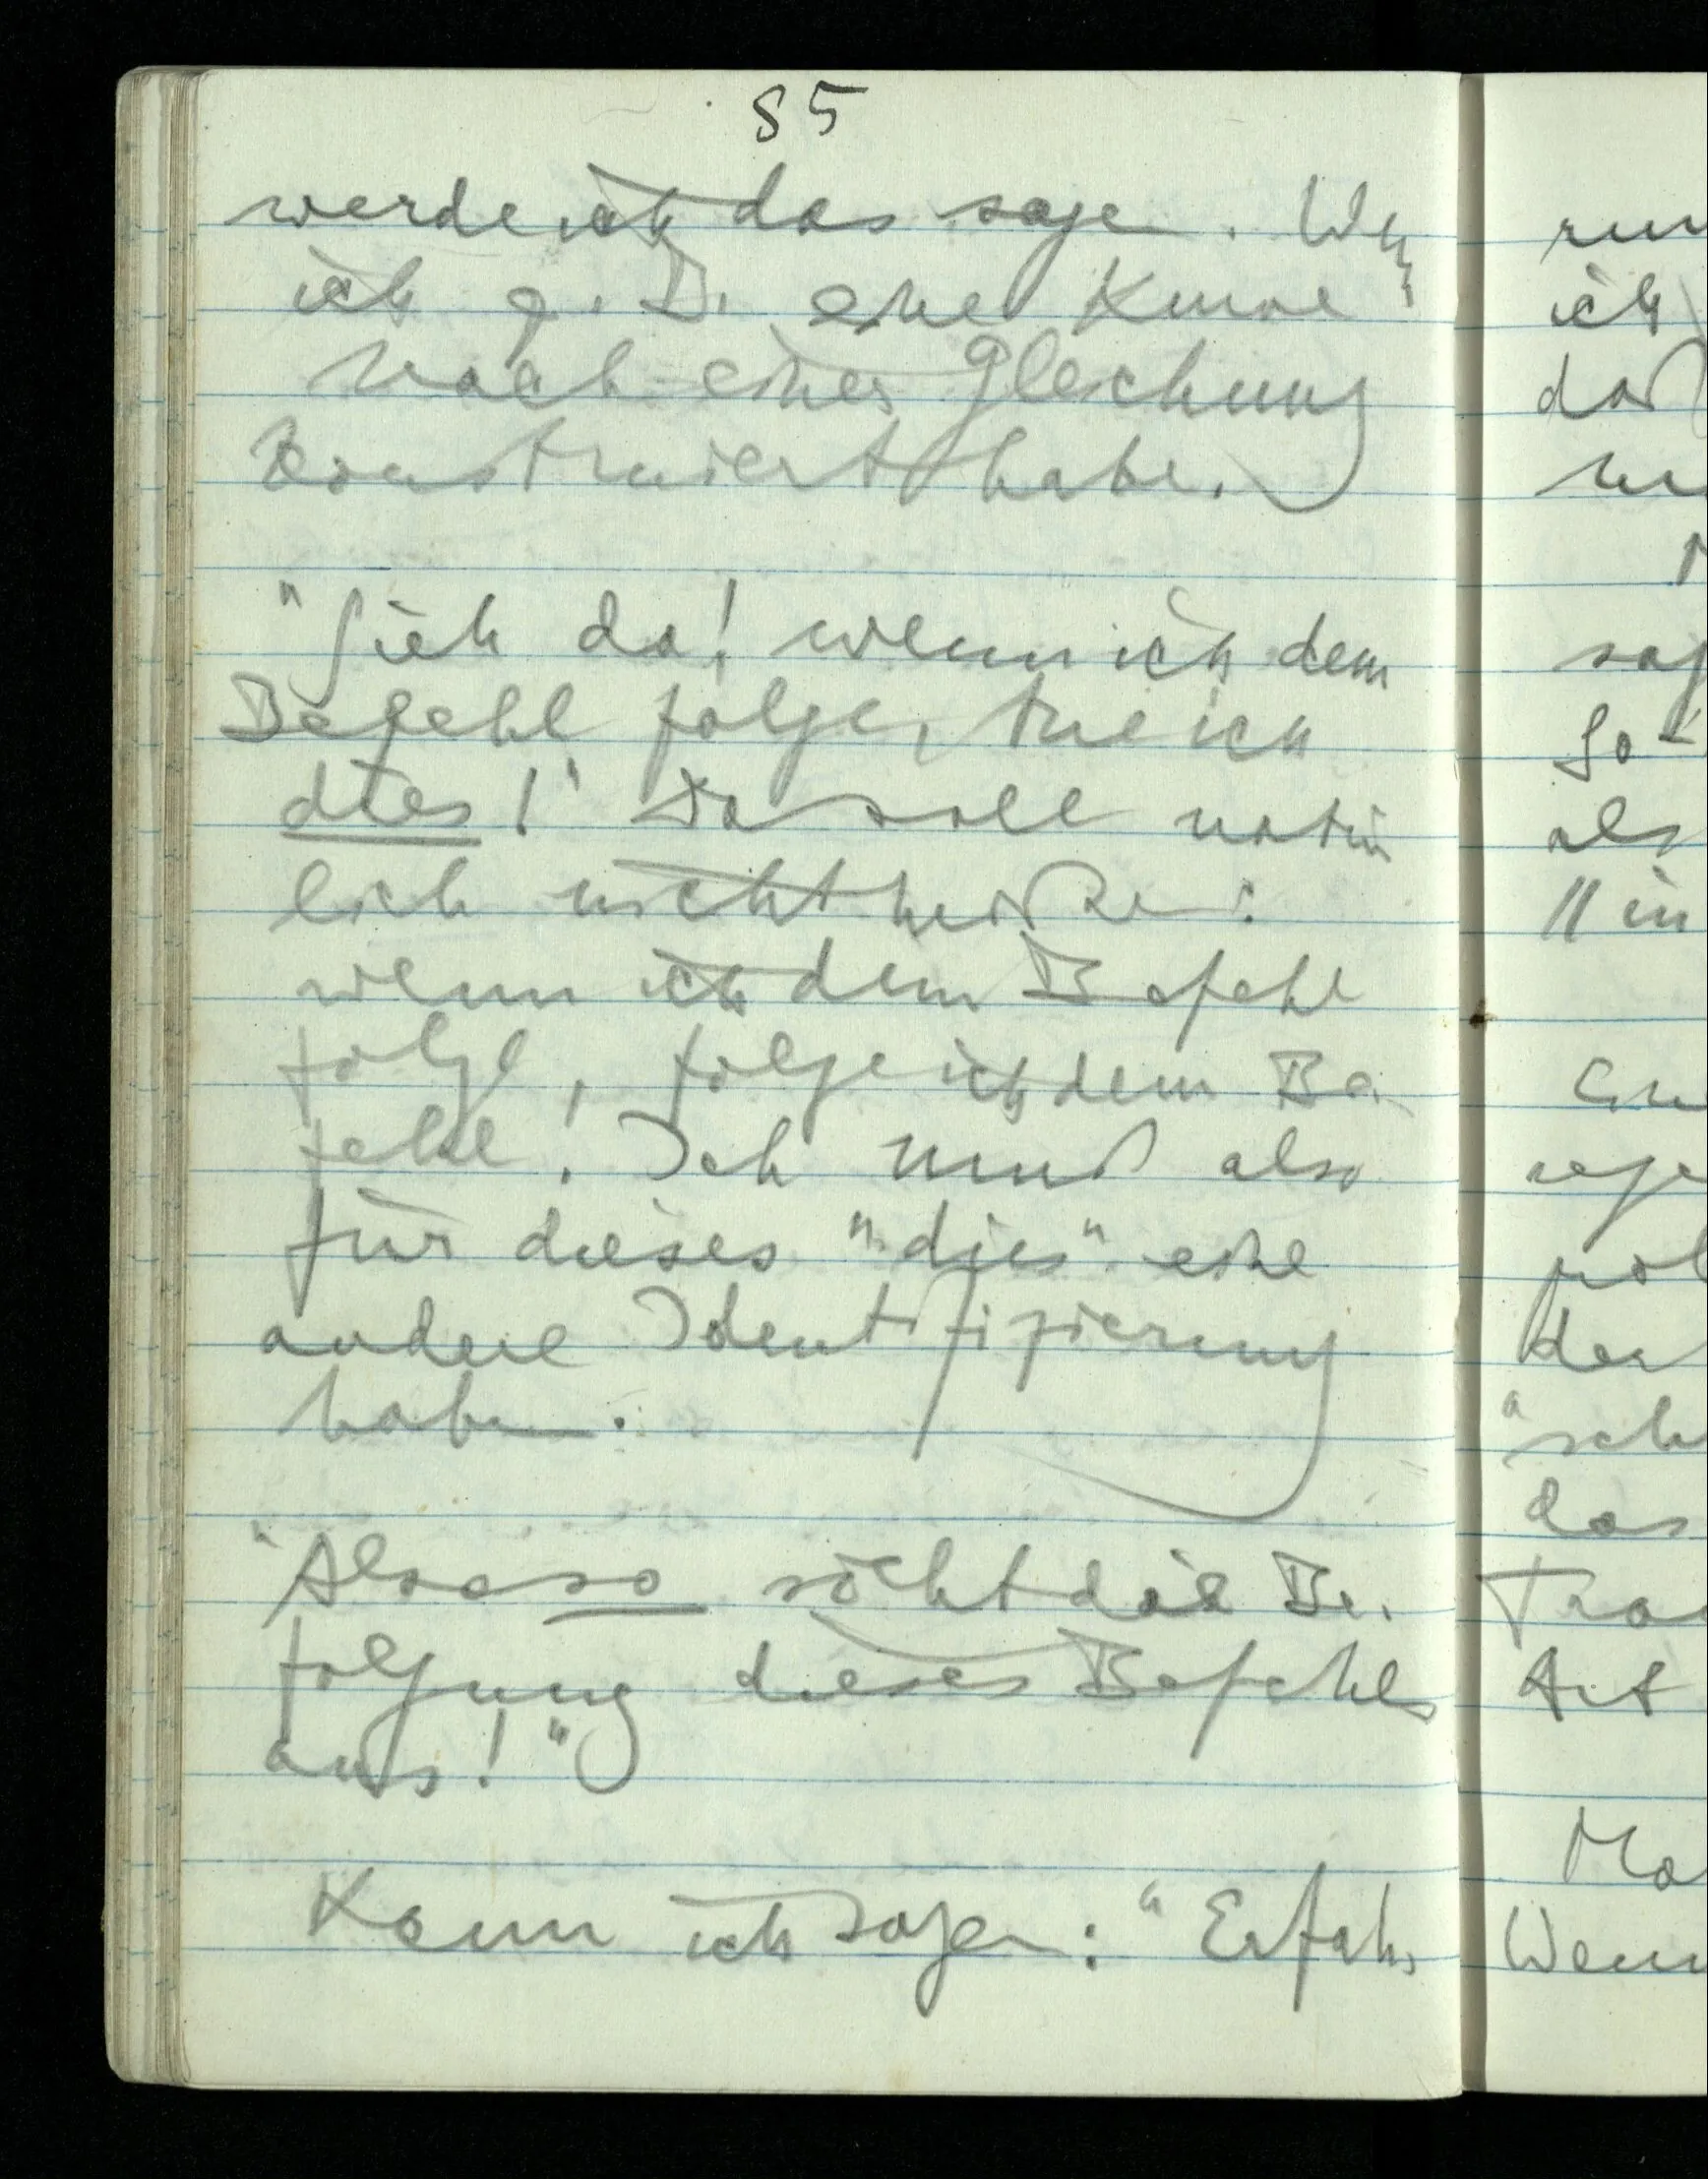 85
werde ich das sagen. Wenn
ich z. B. eine Kurve
nach einer Gleichung
konstruiert habe.
"Sieh da! wenn ich dem
Befehl folge, tue ich
dies!" Das soll natür
lich nicht heißen:
wenn ich dem Befehl
folge, folge ich dem Be-
fehl. Ich muß also
für dieses "dies" eine
andere Identifizierung
haben.
"Also so sieht die Be-
folgung dieses Befehls
aus!"
Kann ich sagen: "Erfah-
run
ich
daß
sag
So
als
// in
der
"sch
das
Tra
Art
Ma
Wenn